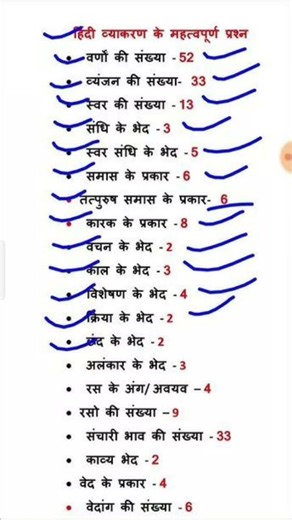 हिंदी व्याकरण के महत्वपूर्ण प्रश्न
वर्णों की संख्या - 52
व्यंजन की संख्या- 33
स्वर की संख्या - 13
संधि के भेद - 3
स्वर संधि के भेद - 5
समास के प्रकार - 6
तत्पुरुष समास के प्रकार- 6
कारक के प्रकार - 8
वचन के भेद - 2
काल के भेद - 3
विशेषण के भेद - 4
क्रिया के भेद - 2
छंद के भेद - 2
अलंकार के भेद - 3
रस के अंग/ अवयव – 4
रसो की संख्या – 9
संचारी भाव की संख्या - 33
काव्य भेद - 2
वेद के प्रकार - 4
वेदांग की संख्या - 6